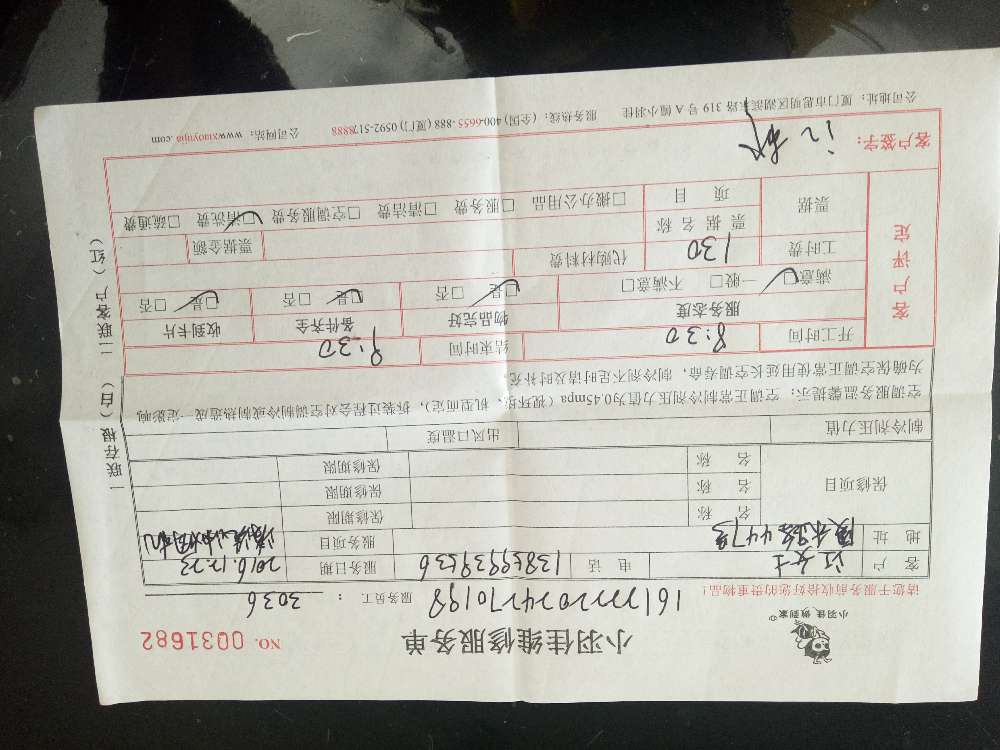 小羽佳 做到家
小羽佳维修服务单
NO. 0031682
请您于服务前收拾好您的贵重物品!
服务员工: 3036
客户 江女士 电话 服务日期 2016.12.23
地址 447号 服务项目 清洗油烟机
保修项目 名称 保修期限
名称 保修期限
名称 保修期限
制冷剂压力值 出风口温度
空调服务温馨提示: 空调正常制冷剂压力值为0.45mpa (视环境、机型而定), 拆装过程会对空调制冷或制热造成一定影响
为确保空调正常使用延长空调寿命, 制冷剂不足时请及时补充。
开工时间 8:30 结束时间 9:30
客户评定
服务态度 物品完好 备件齐全 收到卡片
满意☑ 一般□ 不满意□ ☑是 □否 ☑是 □否 ☑是 □否
工时费 130 代购材料费
票据 票据名称 票据金额
项目 □搬办公用品 □服务费 □清洁费 □空调服务费 ☑清洗费 □疏通费
客户签字: 江
公司地址: 厦门市思明区湖滨东路 319 号 A 幢小羽佳 服务热线: (全国) 400-6655-888 (厦门) 0592-5178888 公司网站: www.xiaoyujia.com
一联存根 (白) 二联客户 (红)